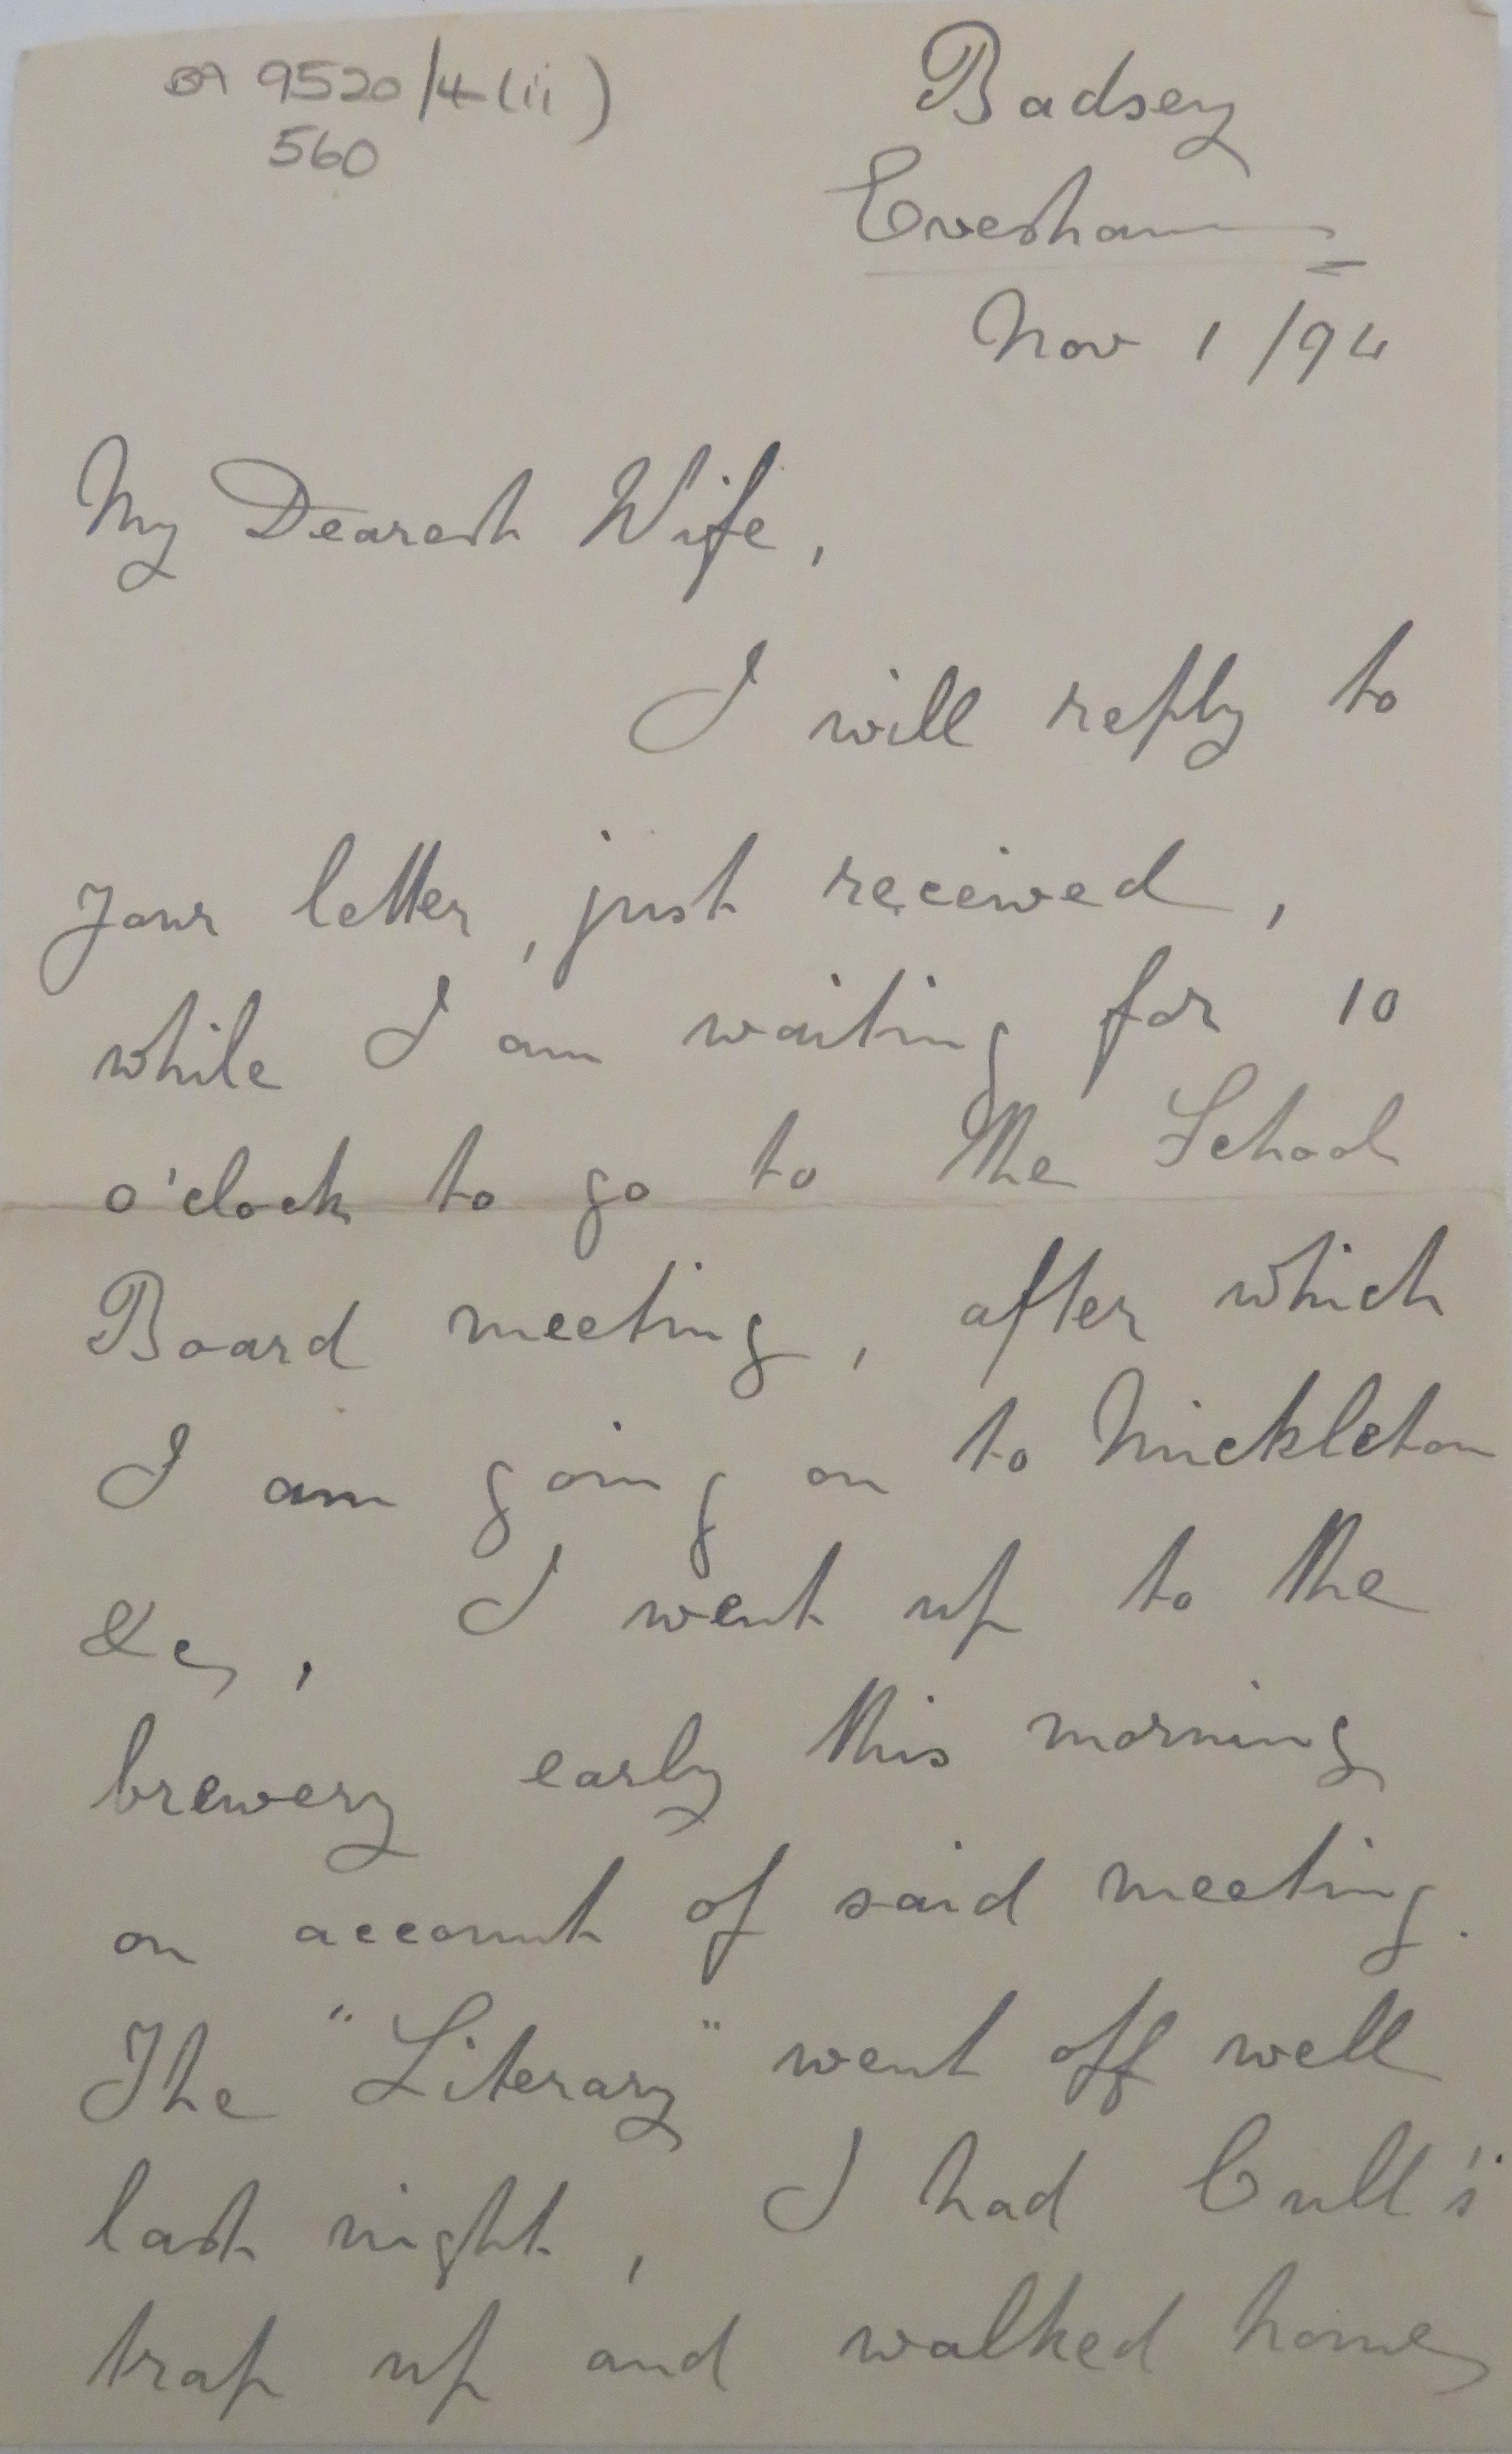 BA 9520/4(ii)
560
Badsey
Evesham
Nov 1/94
My Dearest Wife,
I will reply to
your letter, just received,
while I am waiting for 10
o'clock to go to the School
Board meeting, after which
I am going on to Mickleton
&c, I went up to the
brewery early this morning
on account of said meeting.
The "Literary" went off well
last night, I had Cull's
trap up and walked home